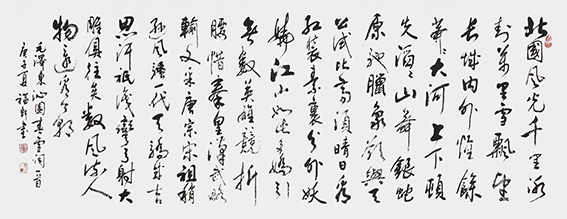 北國風光千里冰
封萬里雪飄望
長城內外惟餘
莽〻大河上下頓
失滔〻山舞銀蛇
原馳臘象欲與天
公試比高須晴日看
紅裝素裹分外妖
嬈江山如此多嬌引
無數英雄競折
腰惜秦皇漢武略
輸文采唐宗宋祖稍
遜風騷一代天驕成吉
思汗祇識彎弓射大
雕俱往矣數風流人
物還看今朝
毛澤東沁園春雪詞一首
庚子夏書